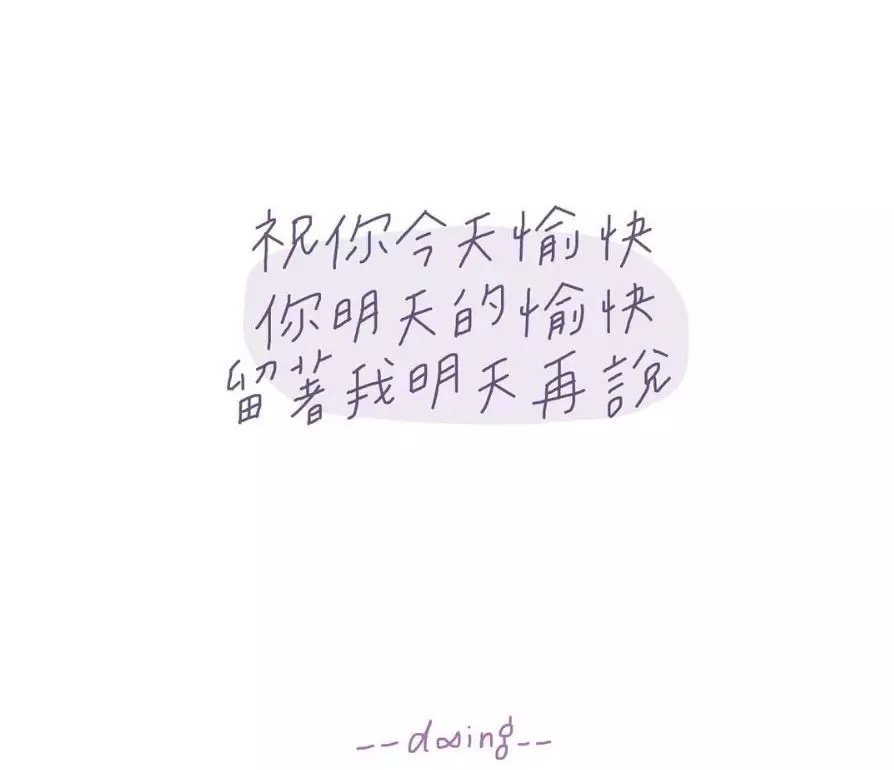 祝你今天愉快
你明天的愉快
留著我明天再說
--dosing--